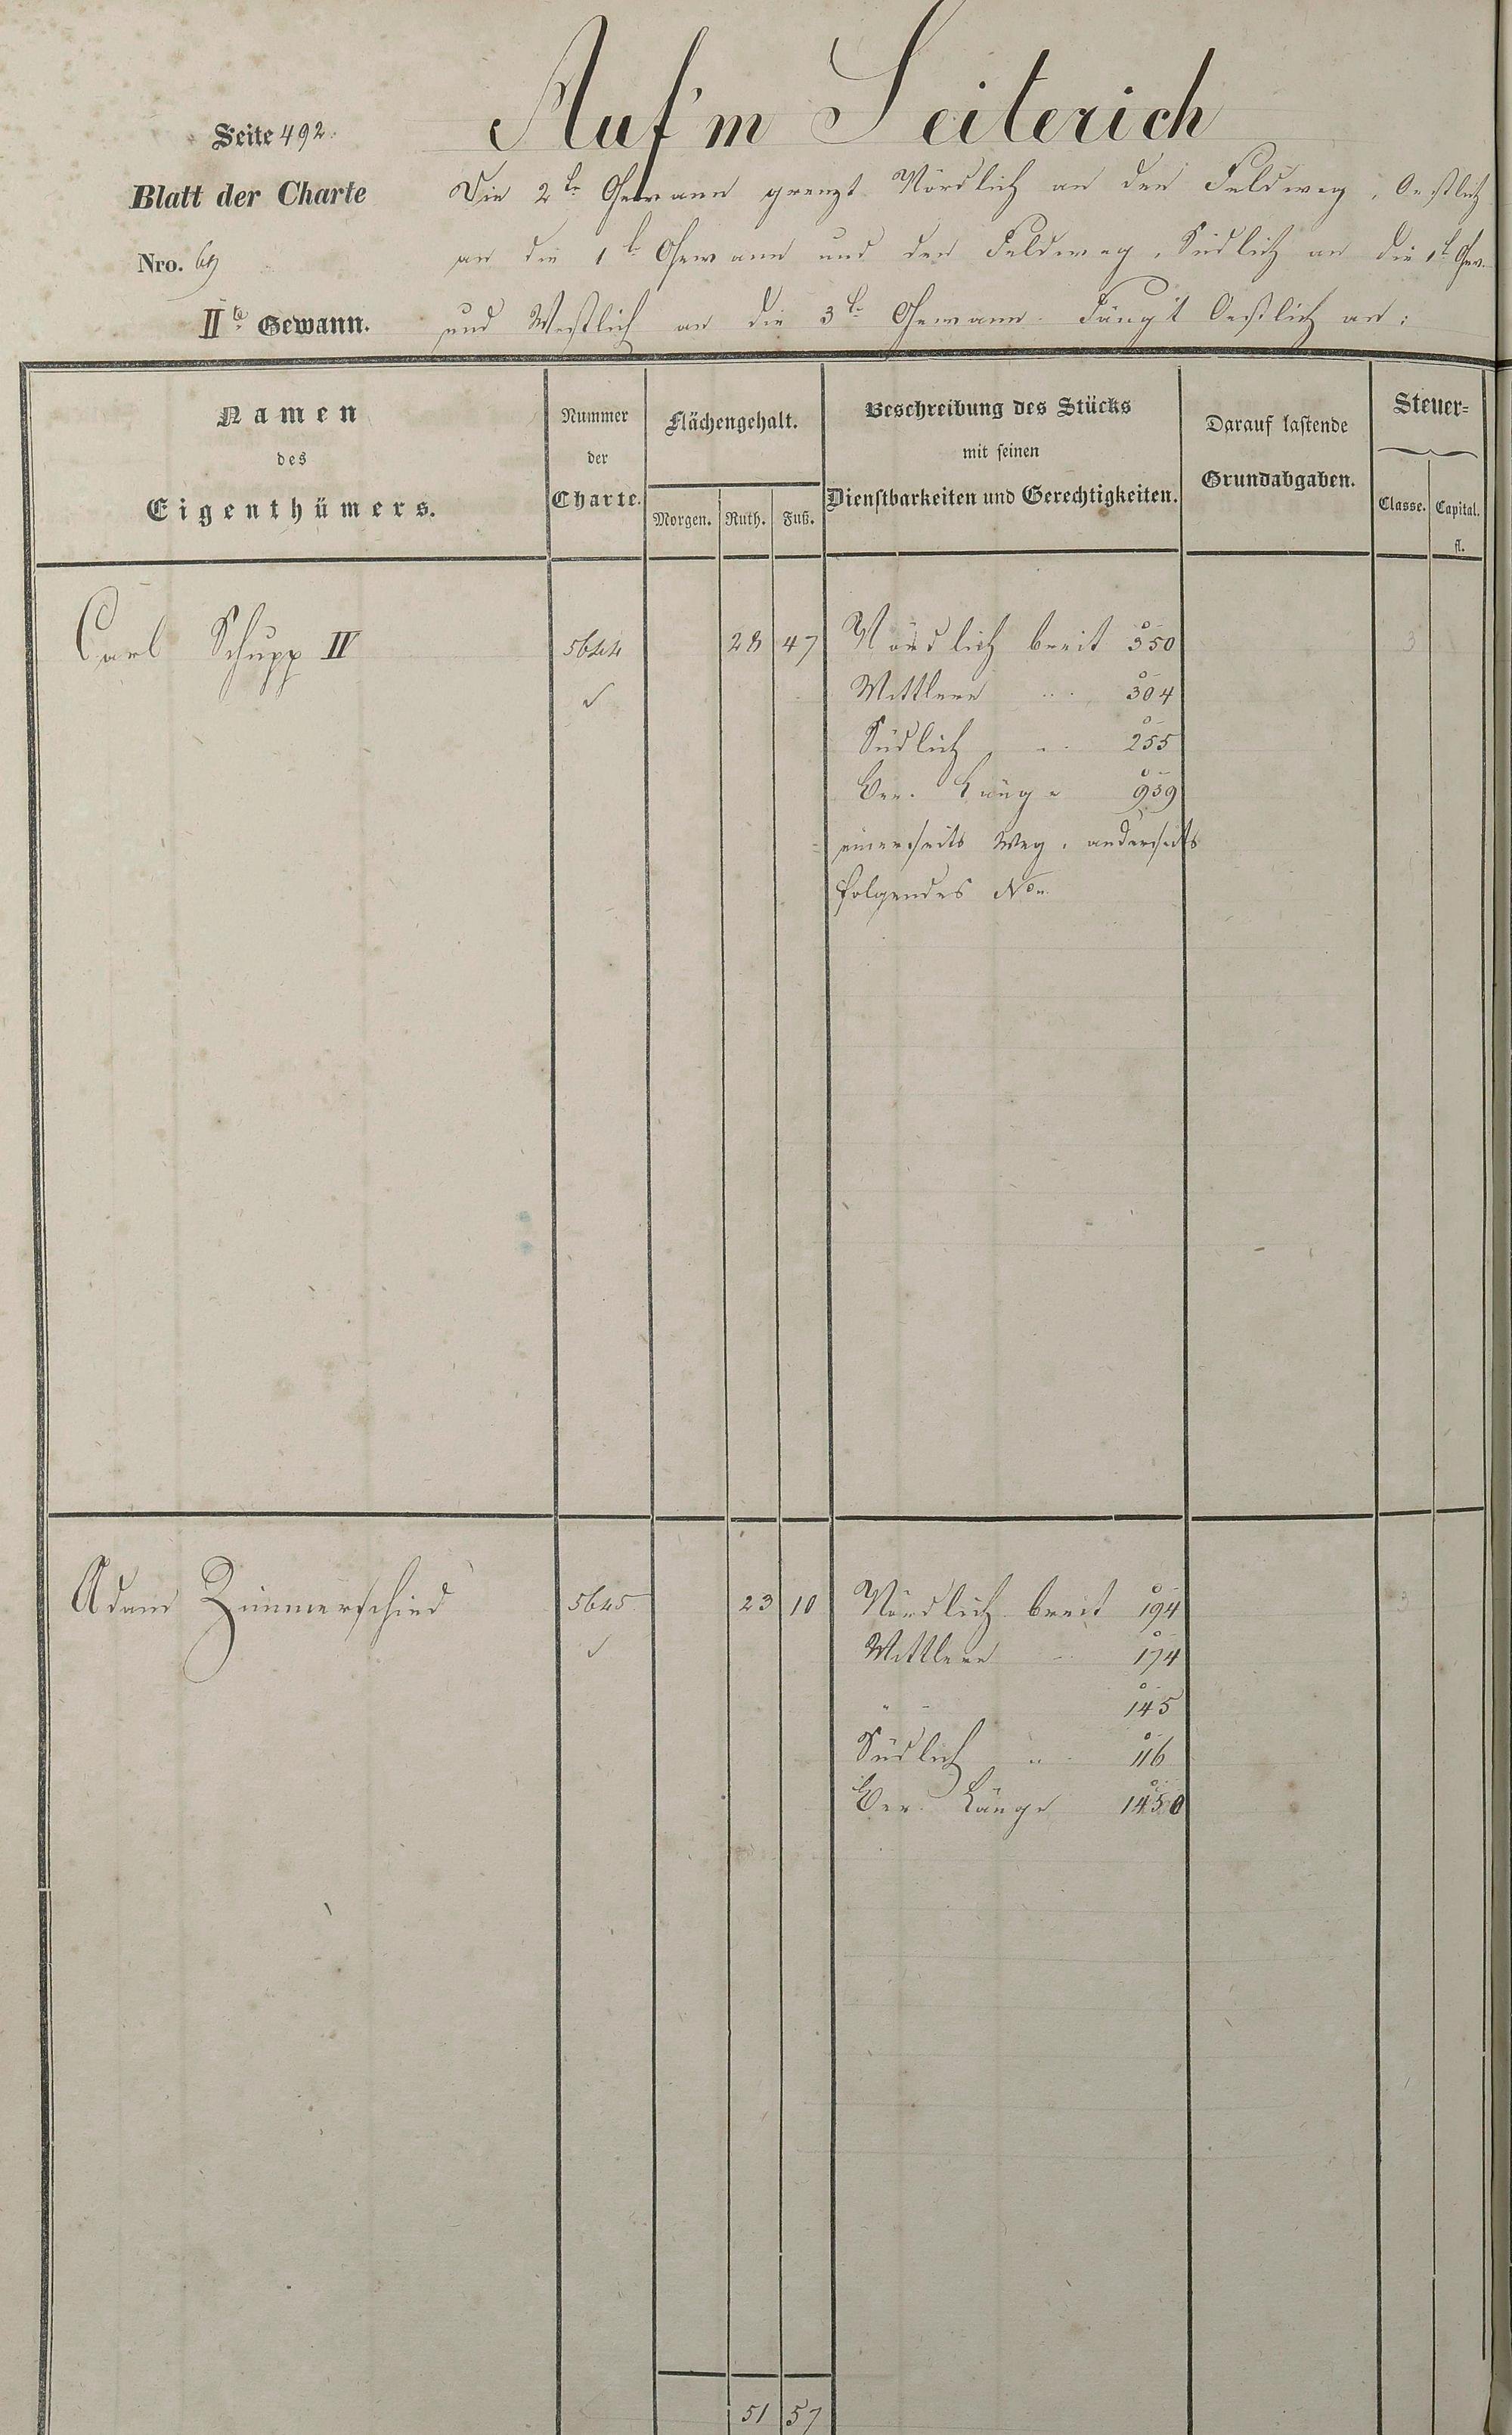 Auf'm Seiterich
Seite 492.
Blatt der Charte
Nro. 69
IIte Gewann.
Die 2te Gewann grenzt Nördlich an den Feldweg, Oestlich
an die 1te Gewann und den Feldweg, Südlich an die 1te Gew.
und Westlich an die 3te Gewann. Fängt Oestlich an:
Namen
des
Eigenthümers.
Nummer
der
Charte.
Flächengehalt.
Morgen. Ruth. Fuß.
Beschreibung des Stücks
mit seinen
Dienstbarkeiten und Gerechtigkeiten.
Darauf lastende
Grundabgaben.
Steuer=
Classe. Capital.
fl.
Carl Schupp IV 5644 28 47 Nördlich breit 350 3
Mittlere " 304
Südlich " 255
Ver. Länge 939
einerseits Weg, anderseits
folgendes No.
Adam Zimmerschied 5645 23 10 Nördlich breit 194 3
Mittlere " 174
" " 145
Südlich " 116
Ver. Länge 1450
51 57